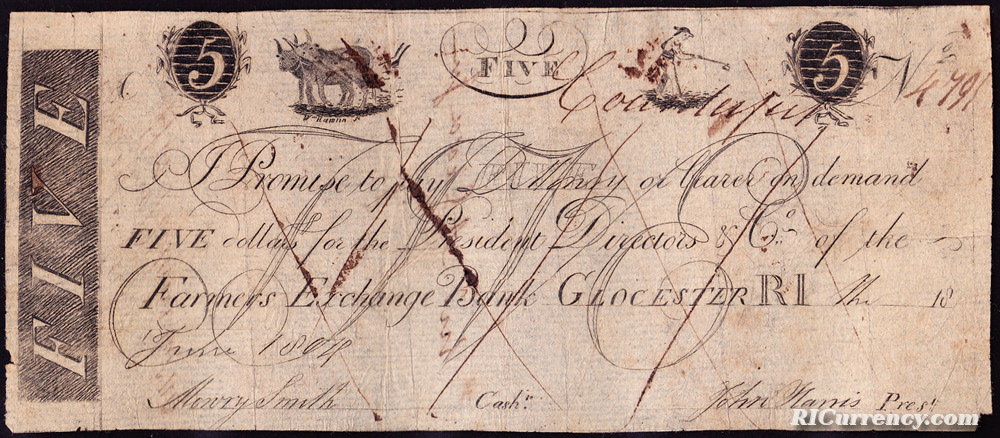 5 FIVE 5 No 4791
Counterfeit
W. Hamlin Sc
FIVE
I Promise to pay or bearer on demand
FIVE dollars for the President Directors & Co. of the
Farmers Exchange Bank GLOCESTER RI the 18
June 1804
Mowry Smith Cashr. John Harris Prest.
RICurrency.com